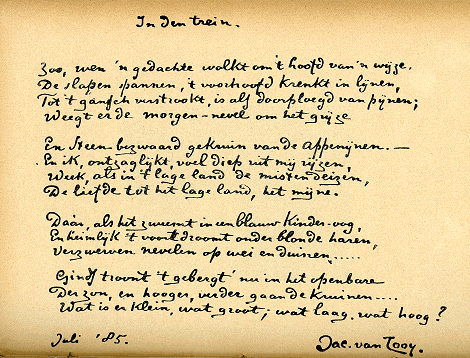 In den trein.
Zoo, wen 'n gedachte wolkt om 't hoofd van 'n wijze.
De slapen spannen, 't voorhoofd krenkt in lijnen,
Tot 't gansch verstrookt, is als doorploegd van pijnen;
Weegt er de morgen-nevel om het grijze
En steen-bezwaard gekruin van de Appenijnen. —
En ik, ontzaglijkt, voel diep uit mij rijzen,
Week, als in 't lage land de misten deizen,
De liefde tot hit lage land, het mijne.
Dáár, als hit zweemt in een blauw kinder-oog,
En heimlijk 't voortdroomt onder blonde haren,
Verzwerven nevelen op wei en duinen.....
Ginds troont 't gebergt' nu in het openbare
Der zon, en hooger, verder gaande kruinen....
Wat is er klein, wat groot; wat laag, wat hoog?
Juli '85.
Jac. van Looy.